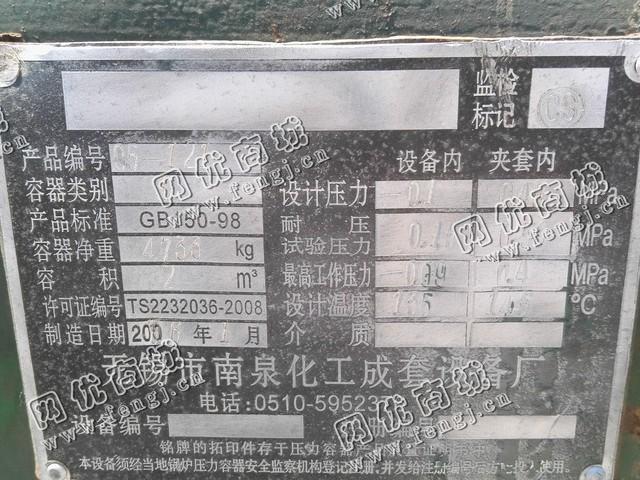 监检
标记
CS
产品编号
设备内 夹套内
容器类别
设计压力 MPa
产品标准 GB150-98
耐压
试验压力 MPa
容器净重 kg
最高工作压力 -0.09 0.4 MPa
容积 m³
设计温度 ℃
许可证编号 TS2232036-2008
制造日期 200 年 1月
介质
无锡市南泉化工成套设备厂
电话:0510-59523
设备编号
铭牌的拓印件存于压力容器产品
本设备须经当地锅炉压力容器安全监察机构登记注册,并发给注册编号后方 投入使用。
网优商城
www.fengj.cn
网优商城
www.fengj.cn
网优商城
www.fengj.cn
网优商城
www.fengj.cn